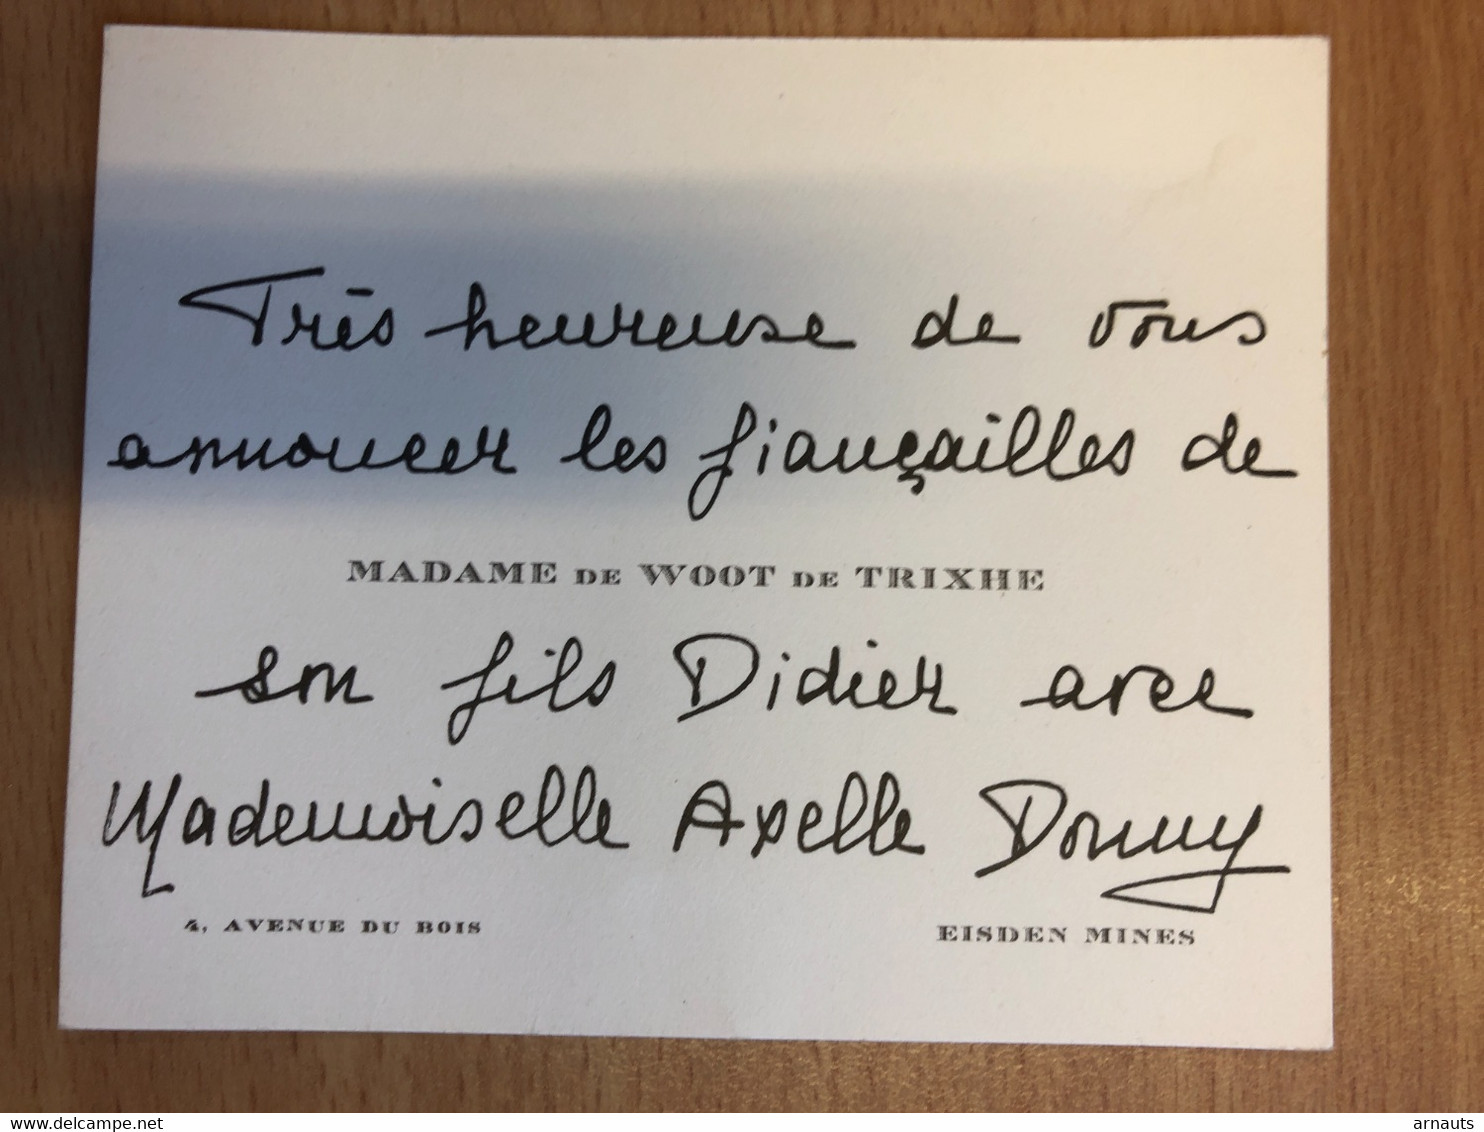 Très heureuse de vous
annoncer les fiançailles de
MADAME DE WOOT DE TRIXHE
son fils Didier avec
Mademoiselle Axelle Donny
4, AVENUE DU BOIS
EISDEN MINES
delcampe.net
arnauts